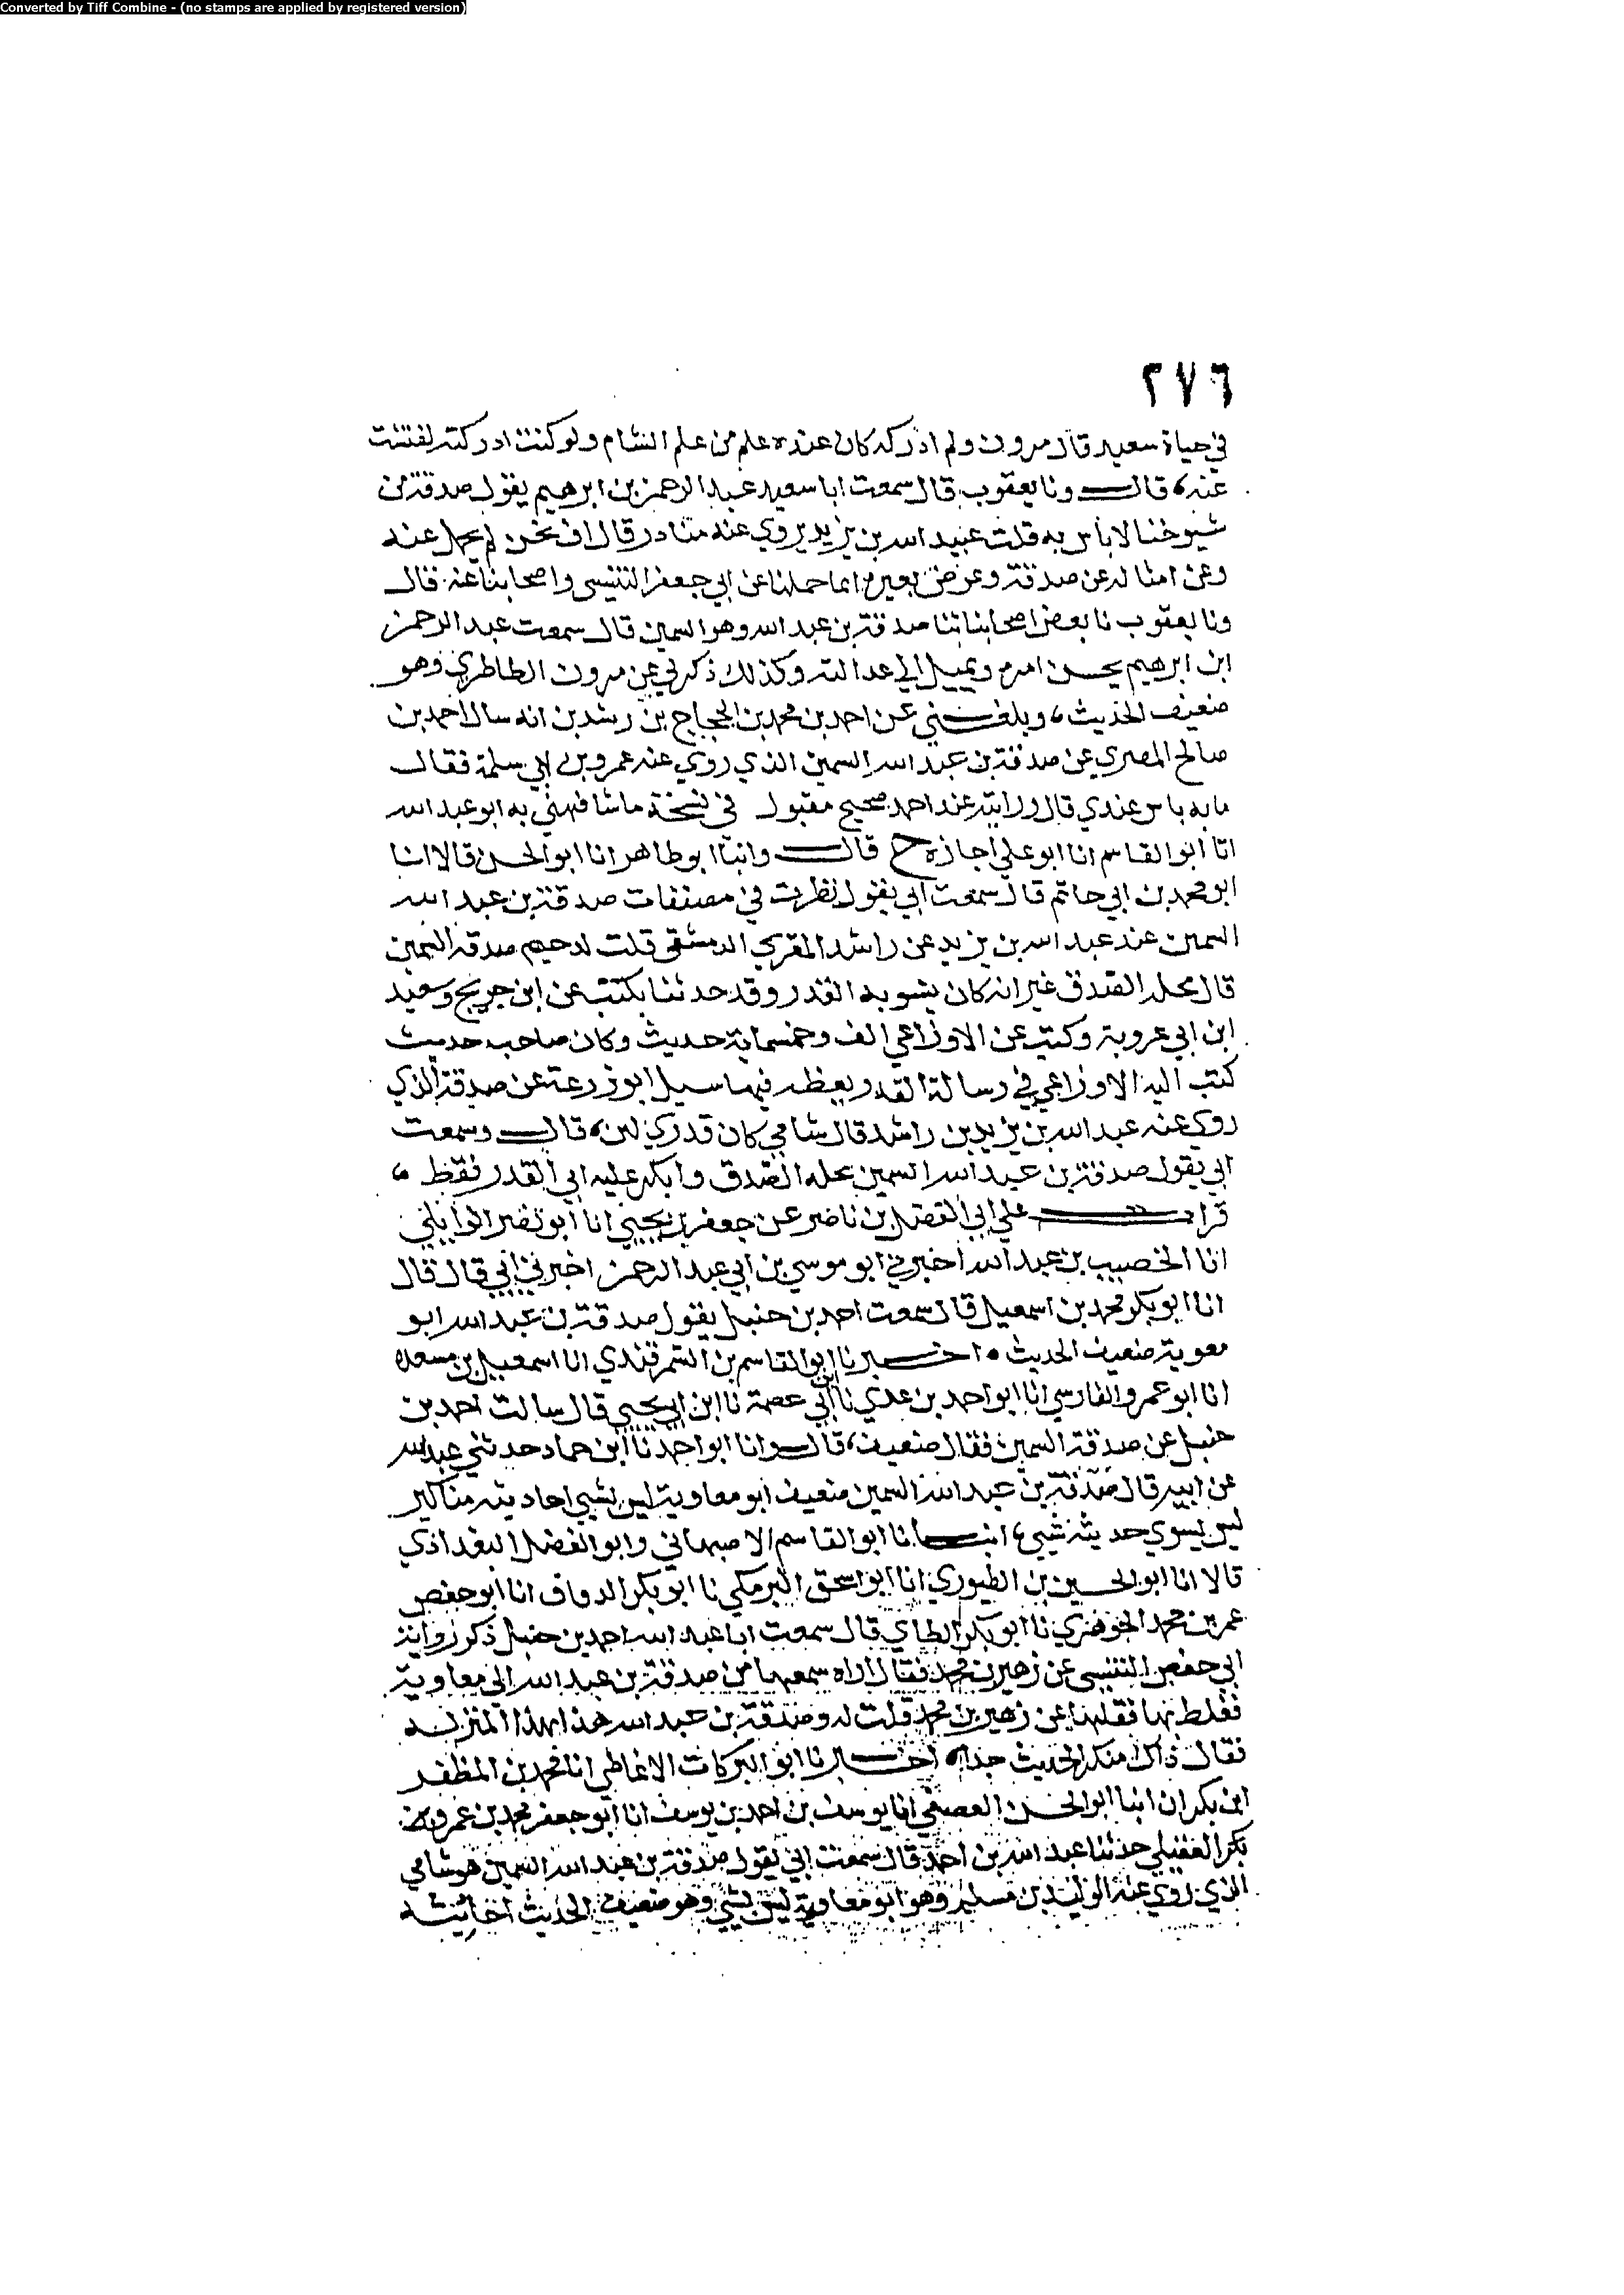 Converted by Tiff Combine - (no stamps are applied by registered version)
٢٧٦
في حياة سعيد قال مرون ولم ادركه كان عنده علم من علم الشام ولو كنت ادركته لفتشت
عنه قال ونا يعقوب قال سمعت ابا سعيد عبد الرحمن بن ابرهيم يقول صدقة من
شيوخنا لا باس به قلت عبيد الله بن يزيد يروي عنه مناكير قال اف نحن لم نحمل عنه
وعن امثاله عن صدقة وعرض بغيره انما حملنا عن ابي حفص التنيسي واصحابنا عنه قال
ونا يعقوب نا بعض اصحابنا نا صدقة بن عبد الله وهو السمين قال سمعت عبد الرحمن
ابن ابرهيم يحسن امره ويميل الي عدالته وكذلك ذكر لي عن مرون الطاطري وهو
ضعيف الحديث وبلغني عن احمد بن محمد بن الحجاج بن رشدين انه سال احمد بن
صالح المصري عن صدقة بن عبد الله السمين الذي روي عنه عمرو بن ابي سلمة فقال
ما به باس عندي قال ورايته عند احمد صحيح مقبول في نسخة ما شافهني به ابو عبد الله
انا ابو القاسم انا ابو علي اجازه ح قال وانبا ابو طاهر انا ابو الحسن قالا انا
ابو محمد بن ابي حاتم قال سمعت ابي يقول نظرت في مصنفات صدقة بن عبد الله
السمين عند عبد الله بن يزيد بن راشد المقري الدمشقي قلت لدحيم صدقة السمين
قال محله الصدق غير انه كان يشوبه القدر وقد حدثنا بكتب عن ابن جريج وسعيد
ابن ابي عروبة وكتب عن الاوزاعي الف وخمسماية حديث وكان صاحب حديث
كتب اليه الاوزاعي في رسالة القدر يعظه فيها سيل ابو زرعة عن صدقة الذي
روي عنه عبد الله بن يزيد بن راشد قال شامي كان قدري لين قال وسمعت
ابي يقول صدقة بن عبد الله السمين محله الصدق وانكر عليه راي القدر فقط
قرات علي ابي الفضل بن ناصر عن جعفر بن يحيي انا ابو نصر الوايلي
انا الخصيب بن عبد الله اخبرني ابو موسي بن ابي عبد الرحمن اخبرني ابي قال قال
انا ابو بكر محمد بن اسمعيل قال سمعت احمد بن حنبل يقول صدقة بن عبد الله ابو
معوية ضعيف الحديث اخبرنا ابو القاسم بن السمرقندي انا اسمعيل بن مسعده
انا ابو عمرو الفارسي انا ابو احمد بن عدي نا ابن ابي عصمة نا ابن ابي يحيي قال سالت احمد بن
حنبل عن صدقة السمين فقال ضعيف قال وانا ابو احمد نا ابن حماد حدثني عبد الله
عن ابيه قال صدقة بن عبد الله السمين ضعيف ابو معاوية ليس بشي احاديثه مناكير
ليس يسوي حديثه شي انبانا ابو القاسم الاصبهاني وابو الفضل البغداذي
قالا انا ابو الحسين بن الطيوري انا ابو اسحق البرمكي نا ابو بكر الدقاق انا ابو حفص
عمر بن محمد الجوهري نا ابو بكر الطاي قال سمعت ابا عبد الله احمد بن حنبل ذكر رواية
ابي حفص التنيسي عن زهير بن محمد فقال اراه سمعها من صدقة بن عبد الله ابي معاوية
فغلط بها فقلبها عن زهير بن محمد قلت له وصدقة بن عبد الله هذا بهذا المنزلة
فقال ذاك منكر الحديث جدا اخبرنا ابو البركات الانماطي انا محمد بن المظفر
ابن بكران انبا ابو الحسن العتيقي انا يوسف بن احمد بن يوسف انا ابو جعفر محمد بن عمرو بن
بكر العقيلي حدثنا عبد الله بن احمد قال سمعت ابي يقول صدقة بن عبد الله السمين هو شامي
الذي روي عنه الوليد بن مسلم وهو ابو معاوية ليس بشي وهو ضعيف الحديث احاديثه